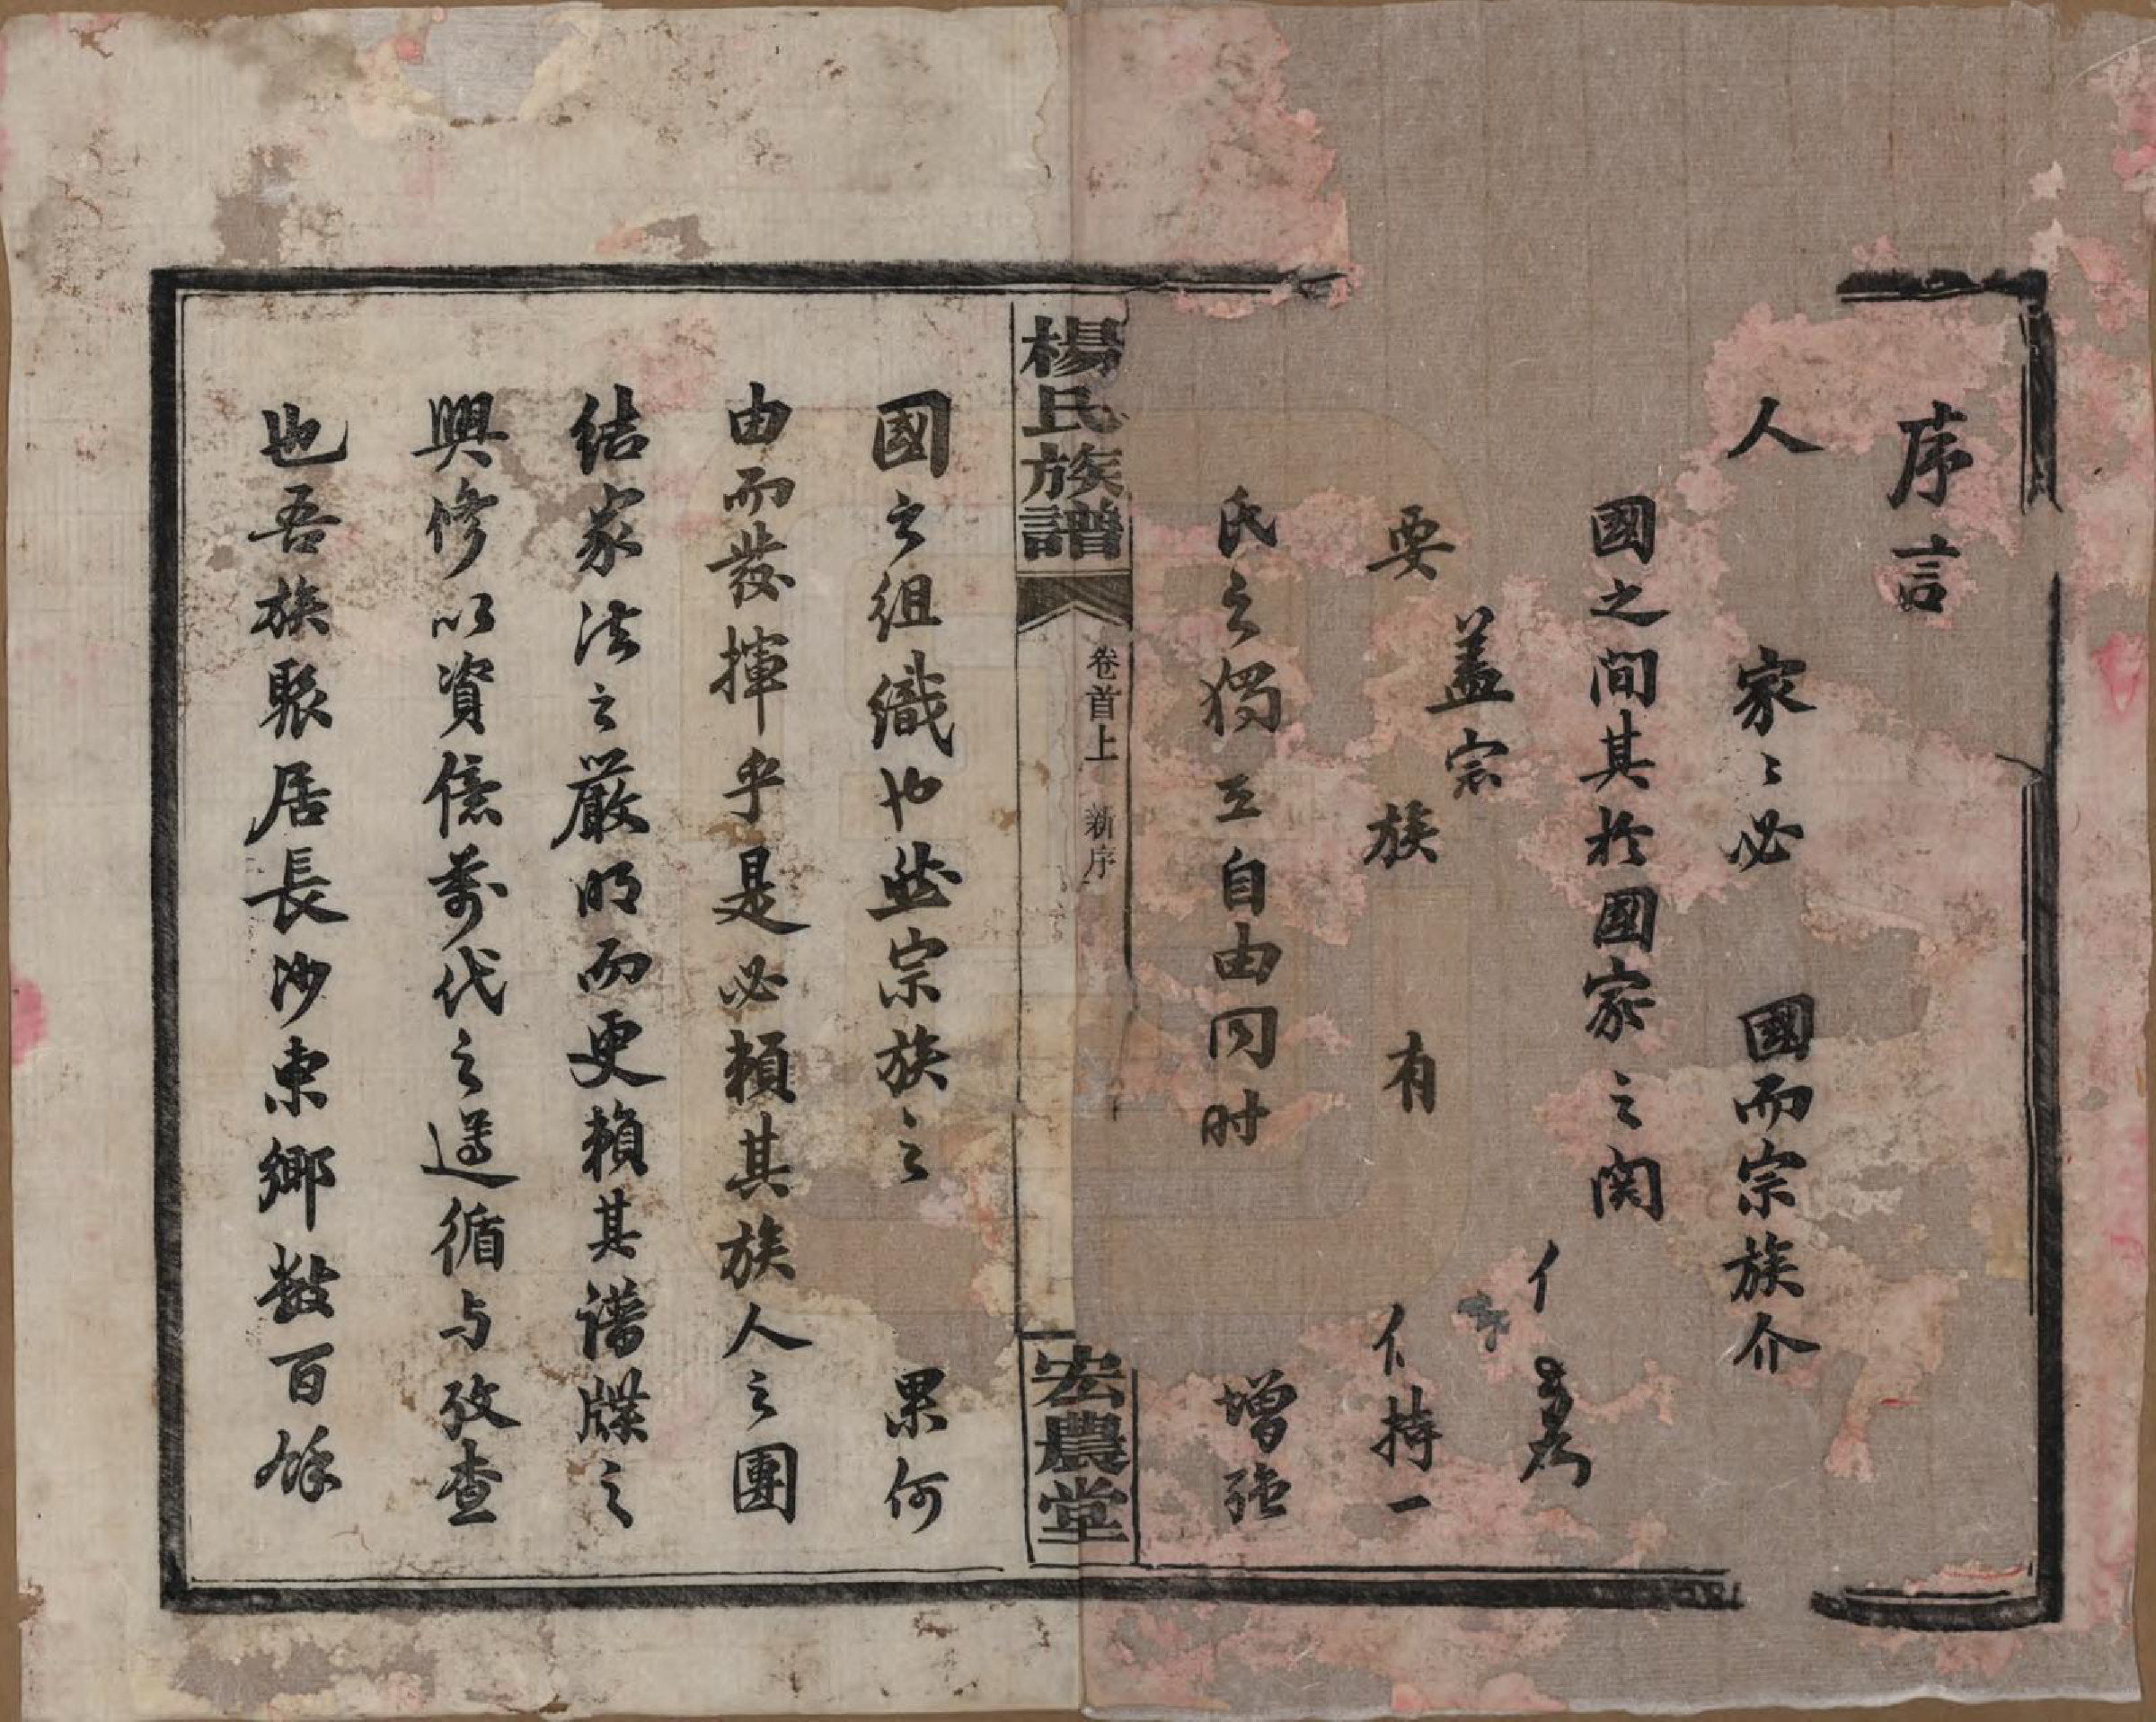 序言
人家〻必國而宗族介
國之间其於國家之関
盖宗
要族有持一
氏之獨立自由同时增强
楊氏族譜
卷首上 新序
宏農堂
國之组織也然宗族之果何
由而發揮乎是必賴其族人之團
结家法之嚴明而更賴其谱牒之
興修以資億萬代之遵循与攷查
也吾族聚居長沙東鄉數百餘